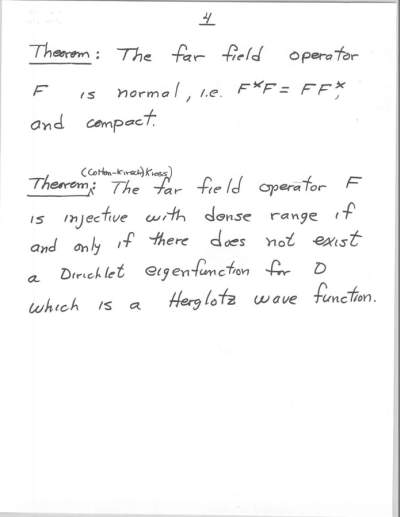 4
Theorem: The far field operator
F is normal, i.e. F*F = FF*,
and compact.
(Colton-Kirsch, Kress)
Theorem: The far field operator F
is injective with dense range if
and only if there does not exist
a Dirichlet eigenfunction for D
which is a Herglotz wave function.